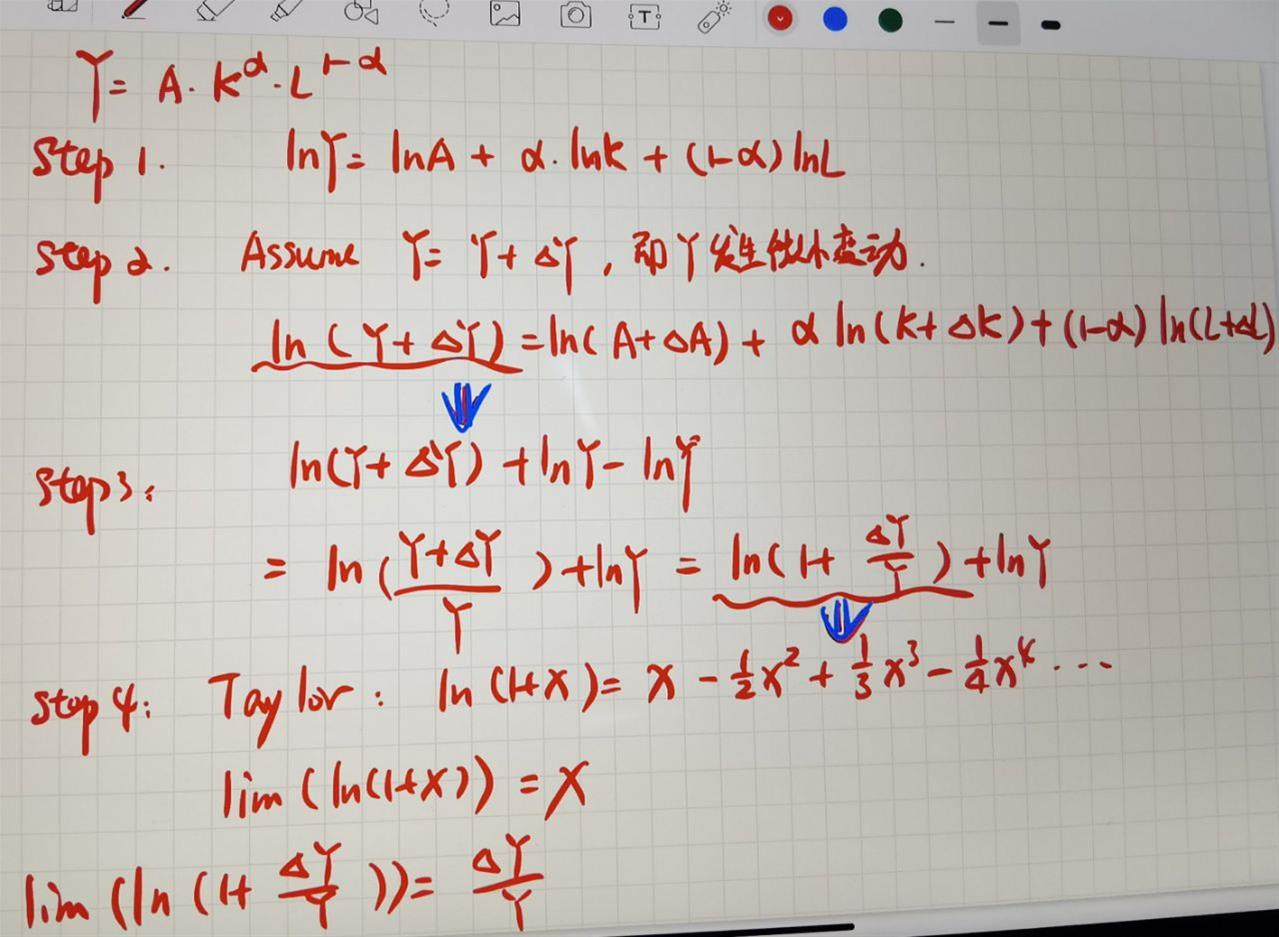 Y = A · K^α · L^{1-α}
Step 1. lnY = lnA + α · lnK + (1-α) lnL
Step 2. Assume Y = Y + ΔY , 即 Y 发生微小变动.
ln (Y + ΔY) = ln( A + ΔA) + α ln (K + ΔK) + (1-α) ln(L+ΔL)
Step 3: ln(Y + ΔY) + lnY - lnY
= ln ( \frac{Y+ΔY}{Y} ) + lnY = ln(1+ \frac{ΔY}{Y} ) + lnY
Step 4: Taylor : ln (1+X) = X - \frac{1}{2}X^2 + \frac{1}{3}X^3 - \frac{1}{4}X^4 ...
lim (ln(1+X)) = X
lim (ln (1+ \frac{ΔY}{Y} )) = \frac{ΔY}{Y}